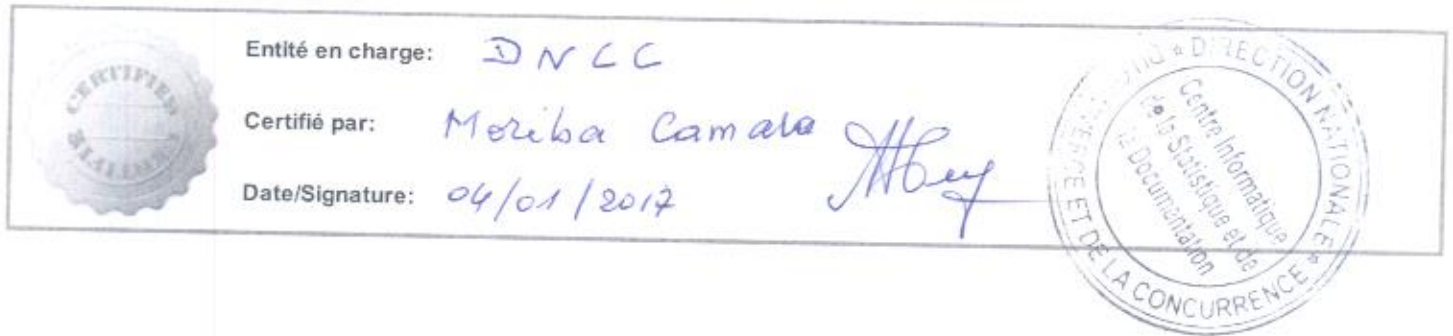 CERTIFIED
CERTIFIED
Entité en charge: DNCC
Certifié par: Moriba Camara
Date/Signature: 04/01/2017
* DIRECTION NATIONALE * DU COMMERCE ET DE LA CONCURRENCE
Centre Informatique
de la Statistique et de
la Documentation